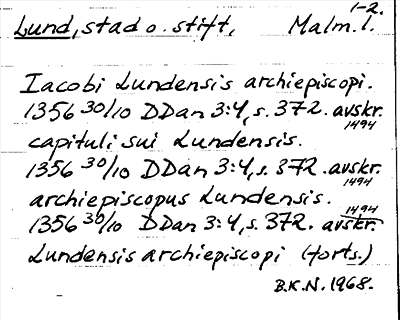 1-2.
Lund, stad o. stift, Malm. l.
Iacobi Lundensis archiepiscopi.
1356 30/10 DDan 3:4, s. 372. avskr. 1494
capituli sui Lundensis.
1356 30/10 DDan 3:4, s. 372. avskr. 1494
archiepiscopus Lundensis.
1356 30/10 DDan 3:4, s. 372. avskr. 1494
Lundensis archiepiscopi (forts.)
B.K.N. 1968.